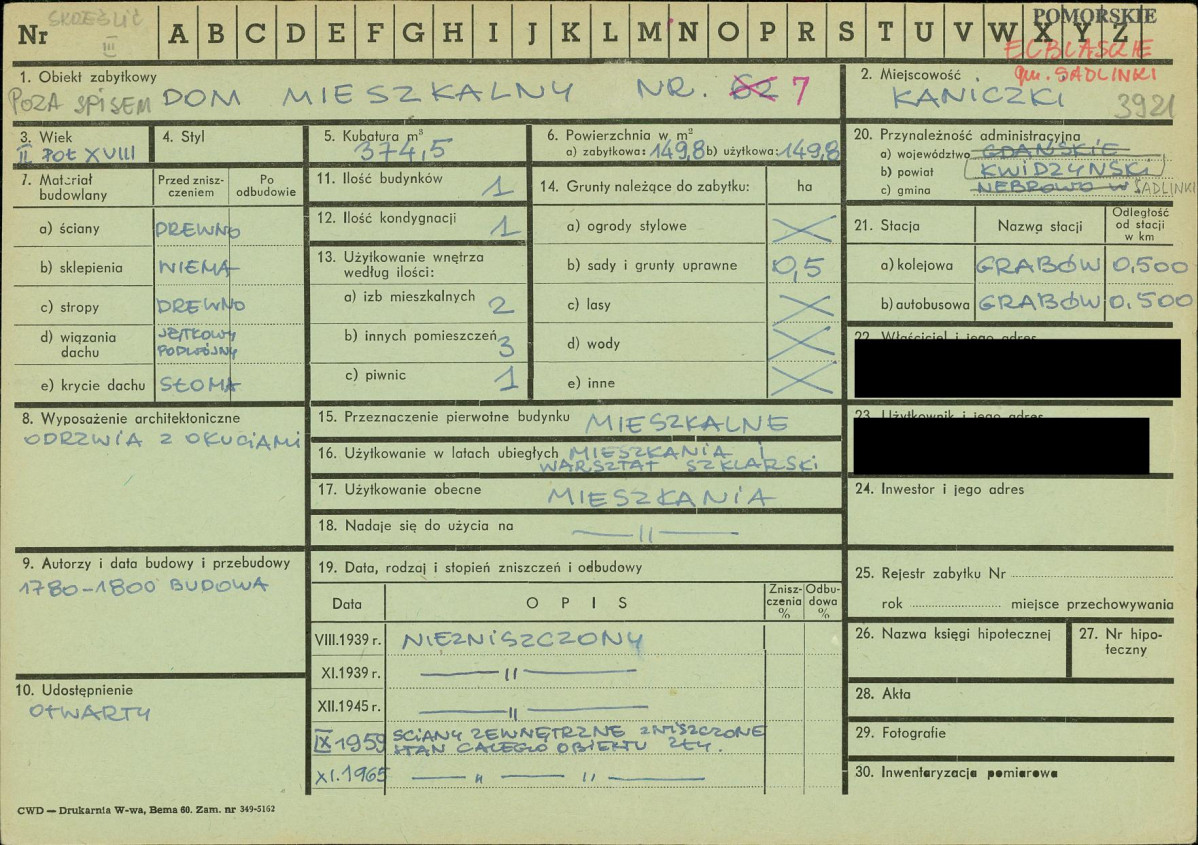 SKREŚLIĆ
III
Nr A B C D E F G H I J K L M N O P R S T U V W X Y Z
POMORSKIE
ELBLĄSKIE
gm. SADLINKI
1. Obiekt zabytkowy
POZA SPISEM
DOM MIESZKALNY NR. 62 7
2. Miejscowość
KANICZKI
3921
3. Wiek
II POŁ XVIII
4. Styl
5. Kubatura m³
374,5
6. Powierzchnia w m²
a) zabytkowa: 149,8 b) użytkowa: 149,8
20. Przynależność administracyjna
a) województwo GDAŃSKIE
b) powiat KWIDZYNSKI
c) gmina NEBROWO W SADLINKI
7. Materiał budowlany
Przed zniszczeniem
Po odbudowie
a) ściany DREWNO
b) sklepienia NIEMA
c) stropy DREWNO
d) wiązania dachu JĘTKOWY PODWÓJNY
e) krycie dachu SŁOMA
11. Ilość budynków 1
12. Ilość kondygnacji 1
13. Użytkowanie wnętrza według ilości:
a) izb mieszkalnych 2
b) innych pomieszczeń 3
c) piwnic 1
14. Grunty należące do zabytku: ha
a) ogrody stylowe
b) sady i grunty uprawne 0,5
c) lasy
d) wody
e) inne
21. Stacja
Nazwa stacji
Odległość od stacji w km
a) kolejowa GRABÓW 0,500
b) autobusowa GRABÓW 0,500
22. Właściciel i jego adres
23. Użytkownik i jego adres
8. Wyposażenie architektoniczne
ODRZWIA Z OKUCIAMI
15. Przeznaczenie pierwotne budynku MIESZKALNE
16. Użytkowanie w latach ubiegłych MIESZKANIA I
WARSZTAT SZKLARSKI
17. Użytkowanie obecne MIESZKANIA
18. Nadaje się do użycia na — 11 —
24. Inwestor i jego adres
9. Autorzy i data budowy i przebudowy
1780-1800 BUDOWA
10. Udostępnienie
OTWARTY
19. Data, rodzaj i stopień zniszczeń i odbudowy
Data
OPIS
Zniszczenia %
Odbudowa %
VIII.1939 r. NIEZNISZCZONY
XI.1939 r. — 11 —
XII.1945 r. — 11 —
IX 1959 SCIANY ZEWNĘTRZNE ZNISZCZONE
STAN CAŁEGO OBIEKTU ZŁY.
XI.1965 — " — 11 —
25. Rejestr zabytku Nr
rok miejsce przechowywania
26. Nazwa księgi hipotecznej
27. Nr hipoteczny
28. Akta
29. Fotografie
30. Inwentaryzacja pomiarowa
CWD — Drukarnia W-wa, Bema 60. Zam. nr 349-5162